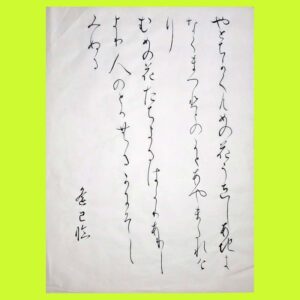 やとちかくむめの花うゑしあちき
なくまつ人のかにあやまたれけ
り
むめの花たちよるはかりありし
より人のとかむるかにそし
みぬる
臨